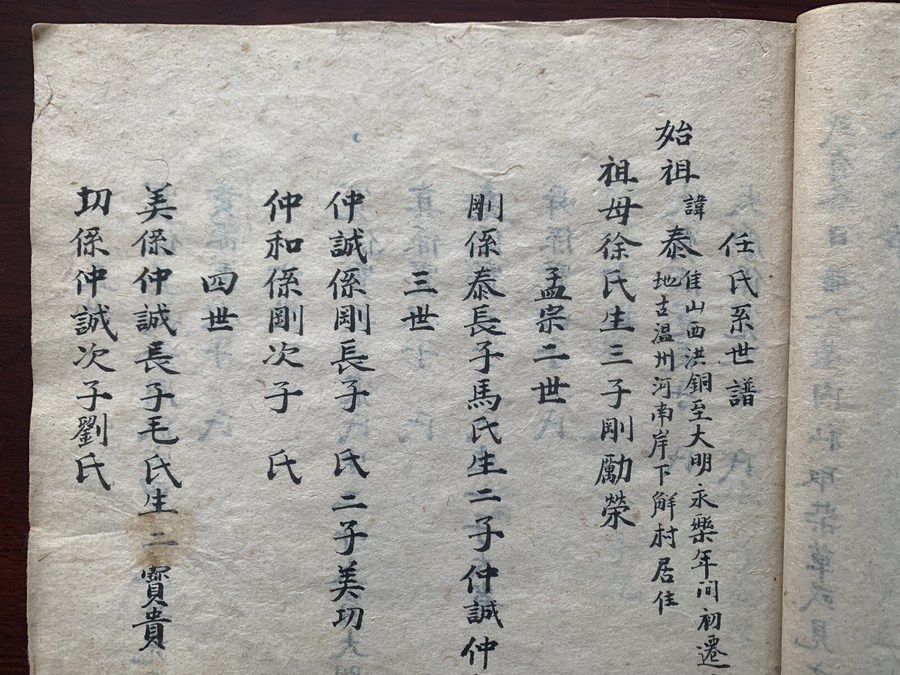 任氏系世譜
始祖諱泰隹山西洪銅至大明永樂年间初遷
地古温州河南岸下解村居住
祖母徐氏生三子剛勵榮
孟宗二世
剛係泰長子馬氏生二子仲誠仲
三世
仲誠係剛長子 氏二子美㓛
仲和係剛次子 氏
四世
美係仲誠長子毛氏生二寶貴
㓛係仲誠次子劉氏